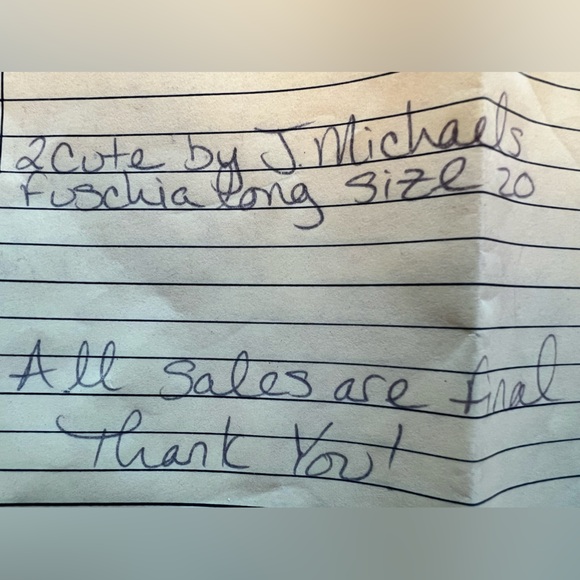 2cute by J. Michaels
Fuschia long size 20
All sales are final
Thank You!